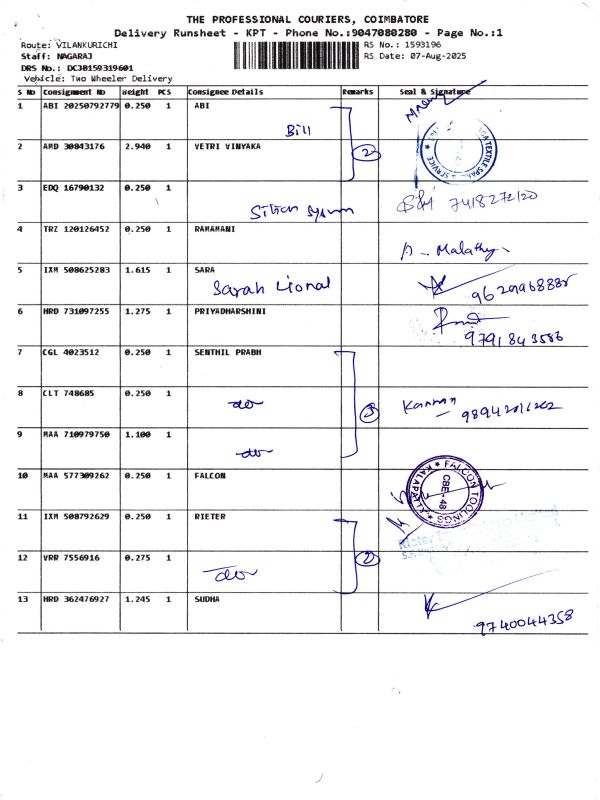 THE PROFESSIONAL COURIERS, COIMBATORE
Delivery Runsheet - KPT - Phone No.:9047080280 - Page No.:1
Route: VILANKURICHI
RS No.: 1593196
Staff: NAGARAJ
RS Date: 07-Aug-2025
DRS No.: DCJB159319601
Vehicle: Two Wheeler Delivery
S No Consignment No Weight PCS Consignee Details Remarks Seal & Signature
1 ABI 20250792779 0.250 1 ABI
Bill
2 AMD 30843176 2.940 1 VETRI VINYAKA 2
3 EDQ 16790132 0.250 1
7418272120
4 TRZ 120126452 0.250 1 RAMAMANI
A. Malathy
5 IXM 508625283 1.615 1 SARA
Sarah Lional 9629968885
6 HRD 731097255 1.275 1 PRIYADHARSHINI
9791843586
7 CGL 4023512 0.250 1 SENTHIL PRABH
8 CLT 748685 0.250 1 do 3 Kannan
9 MAA 710979750 1.100 1 do
10 MAA 577309262 0.250 1 FALCON
FALCON TOOLINGS
CBE-48
KALAPATTI
11 IXM 508792629 0.250 1 RIETER
Rieter
12 VRR 7556916 0.275 1 do 2
13 HRD 362476927 1.245 1 SUDHA
9740044358